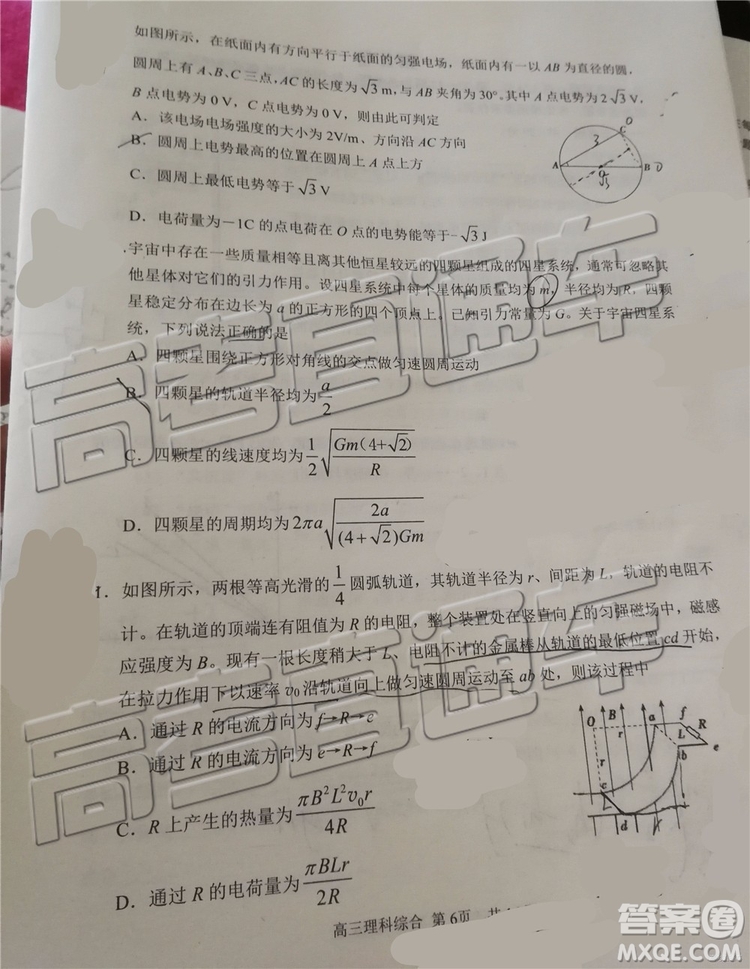 如图所示，在纸面内有方向平行于纸面的匀强电场，纸面内有一以 AB 为直径的圆，
圆周上有 A、B、C 三点，AC 的长度为√3 m，与 AB 夹角为 30°。其中 A 点电势为 2√3 V，
B 点电势为 0 V，C 点电势为 0 V，则由此可判定
A．该电场电场强度的大小为 2V/m、方向沿 AC 方向
B．圆周上电势最高的位置在圆周上 A 点上方
C．圆周上最低电势等于√3 V
D．电荷量为－1C 的点电荷在 O 点的电势能等于-√3 J
A
B
C
O
3
√3
D
.宇宙中存在一些质量相等且离其他恒星较远的四颗星组成的四星系统，通常可忽略其
他星体对它们的引力作用。设四星系统中每个星体的质量均为 m，半径均为 R，四颗
星稳定分布在边长为 a 的正方形的四个顶点上，已知引力常量为 G。关于宇宙四星系
统，下列说法正确的是
A．四颗星围绕正方形对角线的交点做匀速圆周运动
B．四颗星的轨道半径均为a/2
C．四颗星的线速度均为1/2√(Gm(4+√2)/R)
D．四颗星的周期均为2πa√(2a/((4+√2)Gm))
如图所示，两根等高光滑的1/4圆弧轨道，其轨道半径为 r、间距为 L，轨道的电阻不
计。在轨道的顶端连有阻值为 R 的电阻，整个装置处在竖直向上的匀强磁场中，磁感
应强度为 B。现有一根长度稍大于 L、电阻不计的金属棒从轨道的最低位置 cd 开始，
在拉力作用下以速率 v₀沿轨道向上做匀速圆周运动至 ab 处，则该过程中
A．通过 R 的电流方向为 f→R→e
B．通过 R 的电流方向为 e→R→f
C．R 上产生的热量为πB²L²v₀r/4R
D．通过 R 的电荷量为πBLr/2R
O
B
a
f
R
r
L
e
r
b
c
d
高三理科综合 第 6页
高考直通车
高考直通车
答案圈
MXQE.COM